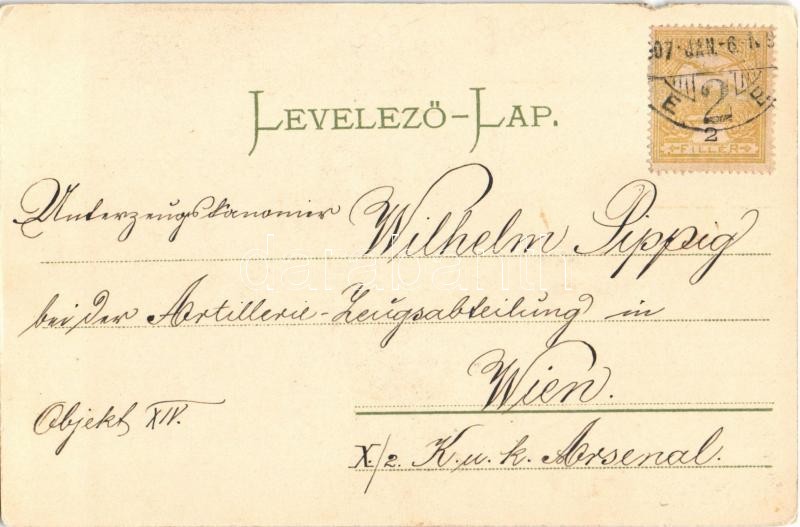 907 JAN.-6.
E
2
2
FILLER
LEVELEZŐ-LAP.
Unterzeugskanonier Wilhelm Pippig
bei der Artillerie-Zeugsabteilung in
Wien.
Objekt XIV.
X./2. K. u. k. Arsenal.
darabanth